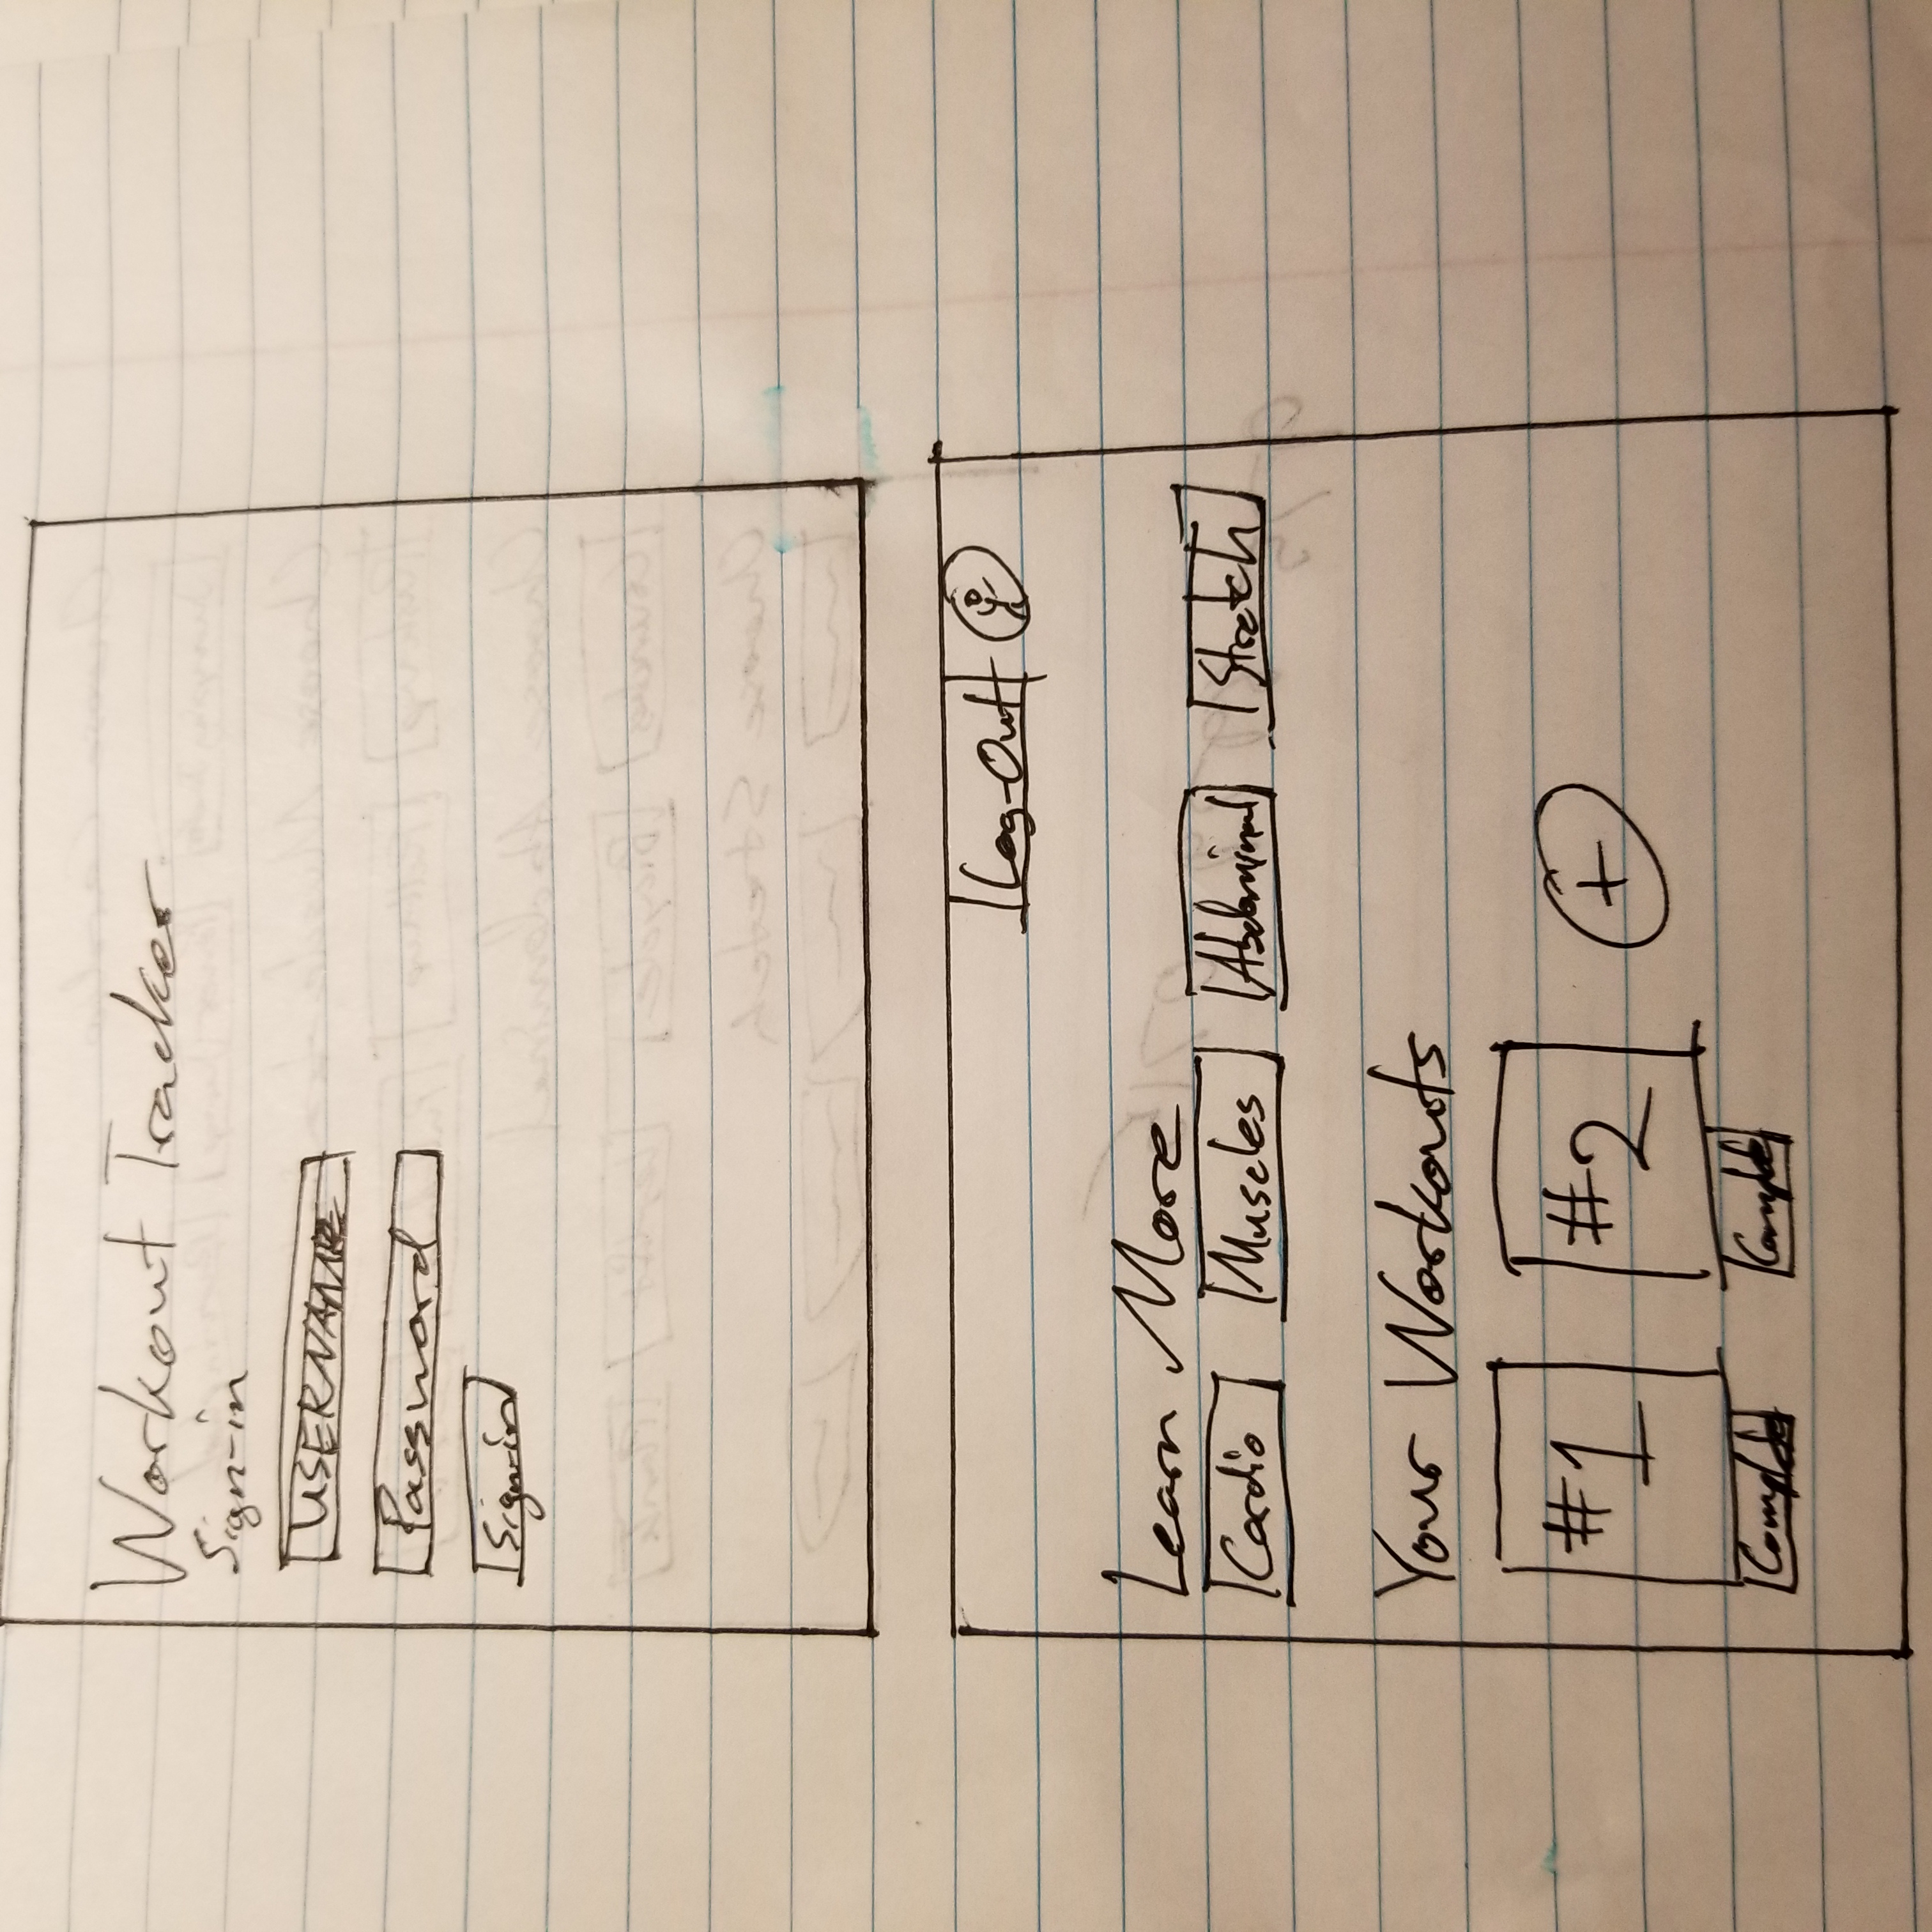 Workout Tracker
Sign-in
USERNAME
Password
Sign-in
Log-Out
Learn More
Cardio Muscles Abdominal Stretch
Your Workouts
#1 #2 +
Complete Complete